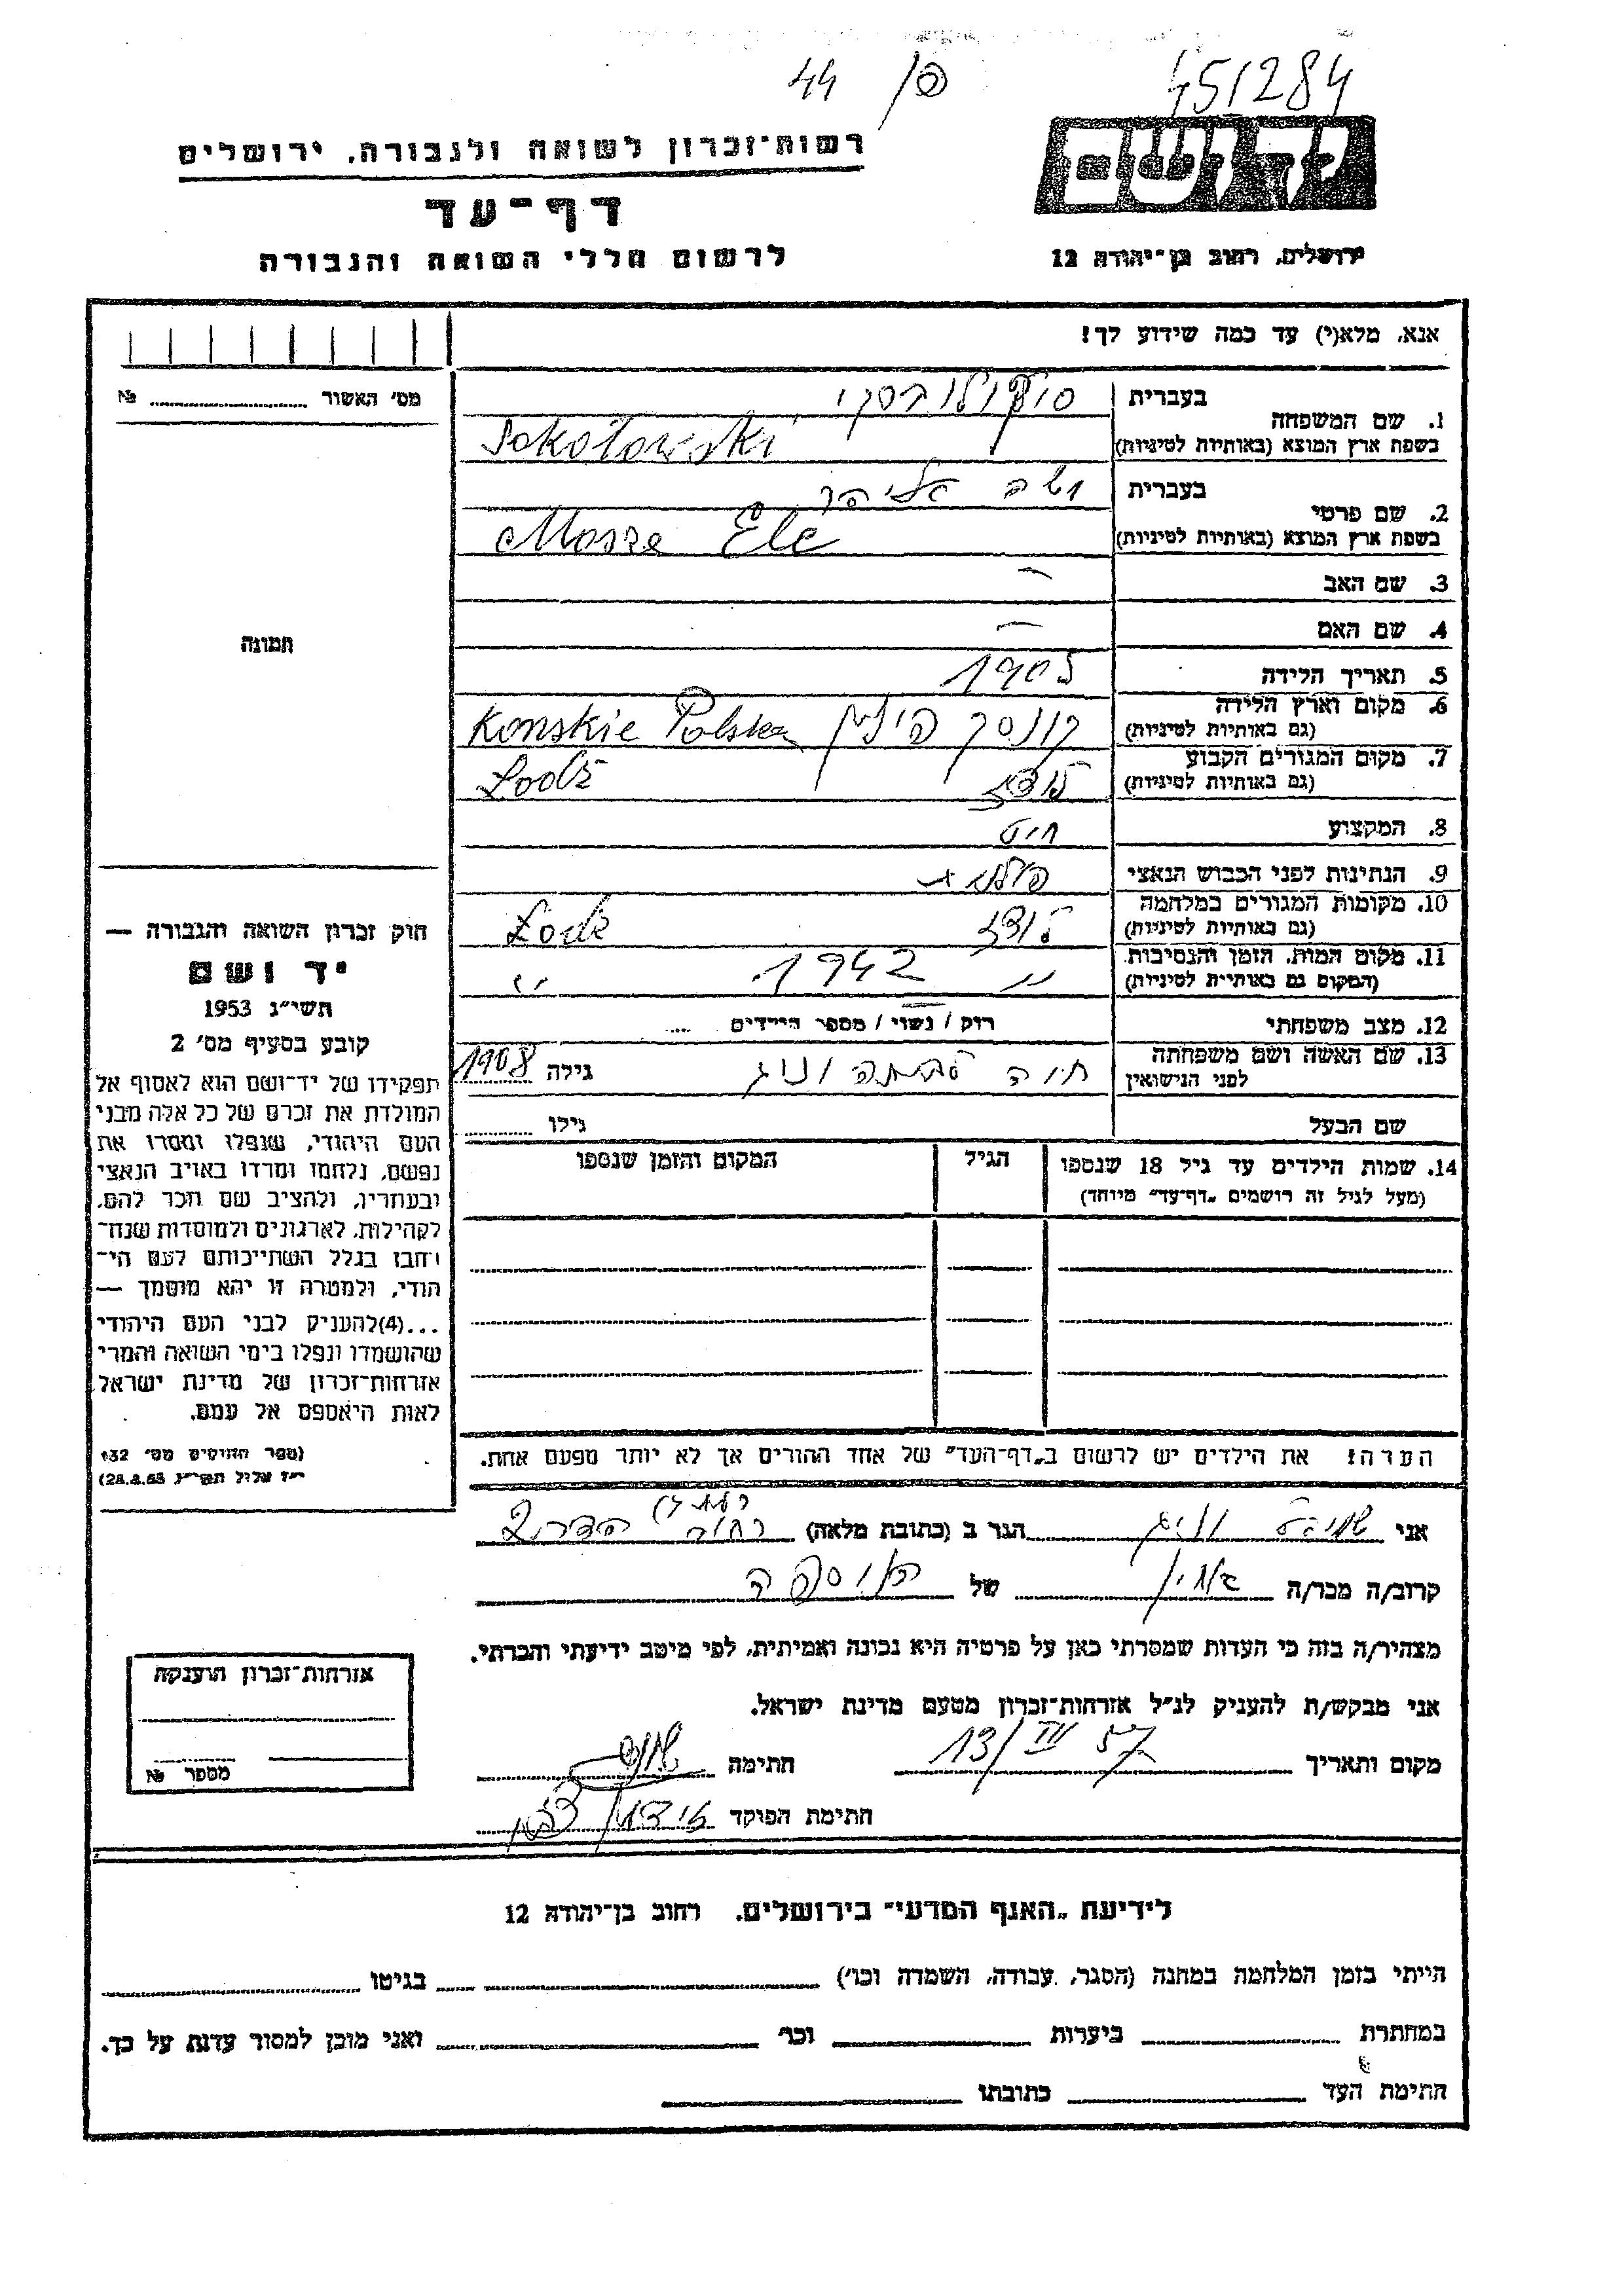 44 פ/ 451284
רשות-זכרון לשואה ולגבורה, ירושלים
יד ושם
דף-עד
לרשום חללי השואה והגבורה
ירושלים, רחוב בן-יהודה 12
אנא, מלא(י) עד כמה שידוע לך!
מס' האשור №
1. שם המשפחה
בעברית
בשפת ארץ המוצא (באותיות לטיניות) Sokołowski
2. שם פרטי
בעברית
בשפת ארץ המוצא (באותיות לטיניות) Mosze Ele
3. שם האב –
4. שם האם –
5. תאריך הלידה 1905
6. מקום וארץ הלידה
(גם באותיות לטיניות) קונסק פולין Konskie Polska
7. מקום המגורים הקבוע
(גם באותיות לטיניות) לודז Łodź
8. המקצוע חיט
9. הנתינות לפני הכבוש הנאצי פולנית
10. מקומות המגורים במלחמה
(גם באותיות לטיניות) לודז Łodz
11. מקום המות, הזמן והנסיבות
(המקום גם באותיות לטיניות) " 1942 "
12. מצב משפחתי רוק / נשוי / מספר הילדים
13. שם האשה ושם משפחתה
לפני הנישואין חוה גילה 1908
שם הבעל גילו
14. שמות הילדים עד גיל 18 שנספו הגיל המקום והזמן שנספו
(מעל לגיל זה רושמים „דף-עד" מיוחד)
הערה: את הילדים יש לרשום ב„דף-העד" של אחד ההורים אך לא יותר מפעם אחת.
תמונה
חוק זכרון השואה והגבורה —
יד ושם
תשי"ג 1953
קובע בסעיף מס' 2
תפקידו של יד-ושם הוא לאסוף אל
המולדת את זכרם של כל אלה מבני
העם היהודי, שנפלו ומסרו את
נפשם, נלחמו ומרדו באויב הנאצי
ובעוזריו, ולהציב שם וזכר להם,
לקהילות, לארגונים ולמוסדות שנח-
רבו בגלל השתייכותם לעם הי-
הודי, ולמטרה זו יהא מוסמך —
...(4)להעניק לבני העם היהודי
שהושמדו ונפלו בימי השואה והמרי
אזרחות-זכרון של מדינת ישראל
לאות היאספם אל עמם.
(ספר החוקים מס' 132
י"ז אלול תשי"ג, 28.8.53)
אני הגר ב (כתובת מלאה) רחוב
קרוב/ה מכר/ה של
מצהיר/ה בזה כי העדות שמסרתי כאן על פרטיה היא נכונה ואמיתית, לפי מיטב ידיעתי והכרתי.
אני מבקש/ת להעניק לנ"ל אזרחות-זכרון מטעם מדינת ישראל.
מקום ותאריך 13/III 57 חתימה
חתימת הפוקד
אזרחות-זכרון הוענקה
מספר №
לידיעת „האגף המדעי" בירושלים, רחוב בן-יהודה 12
הייתי בזמן המלחמה במחנה (הסגר, עבודה, השמדה וכו') בגיטו
במחתרת ביערות וכו' ואני מוכן למסור עדות על כך.
חתימת העד כתובתו